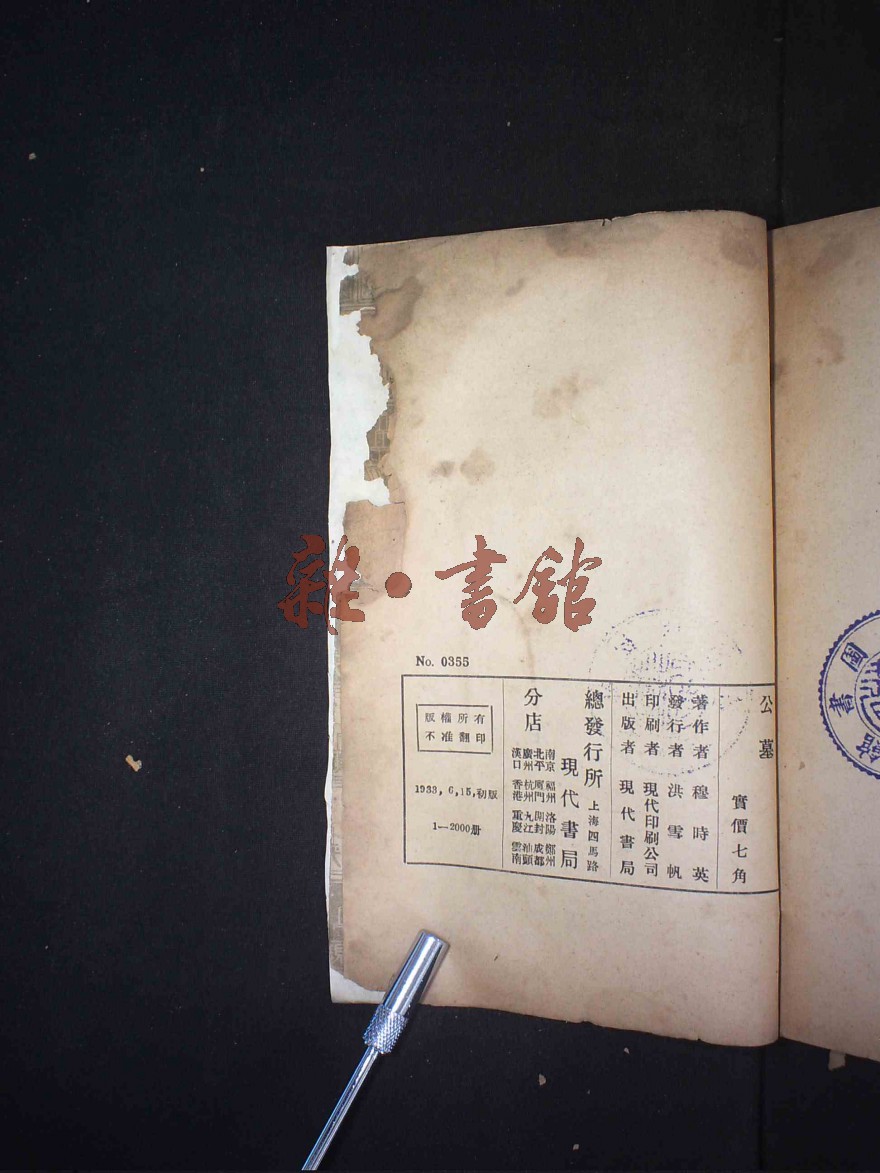 雜·書館
No. 0355
公墓
實價七角
著作者 穆時英
發行者 洪雪帆
印刷者 現代印刷公司
出版者 現代書局
總發行所 上海四馬路
現代書局
分店
南京 福州 洛陽 鄭州
北平 廈門 開封 成都
廣州 杭州 九江 汕頭
漢口 香港 重慶 雲南
版權所有
不准翻印
1933,6,15,初版
1—2000册
圖
書